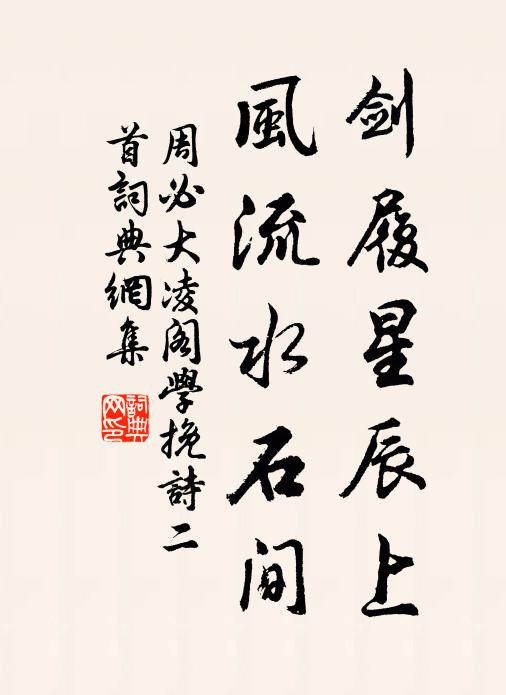 剑履星辰上
風流水石间
周必大凌阁學挽詩二
首詞典網集
詞典网印